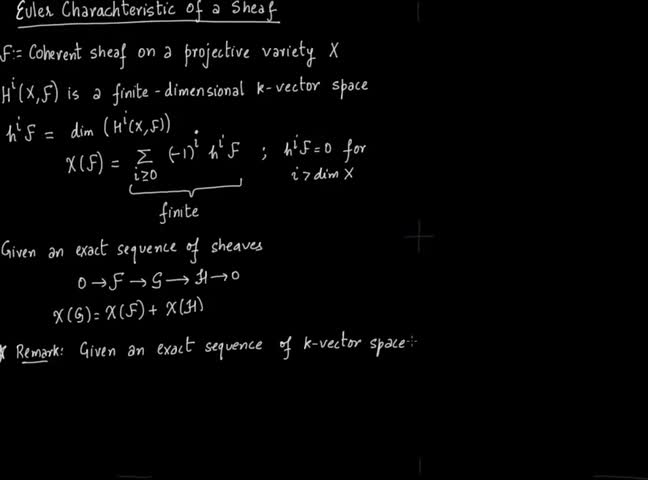 Euler Charachteristic of a Sheaf
F := Coherent sheaf on a projective variety X
Hⁱ(X,F) is a finite-dimensional k-vector space
hⁱF = dim (Hⁱ(X,F))
χ(F) = ∑_{i≥0} (-1)ⁱ hⁱF ; hⁱF=0 for
i > dim X
finite
Given an exact sequence of sheaves
0 → F → G → H → 0
χ(G) = χ(F) + χ(H)
* Remark: Given an exact sequence of k-vector space